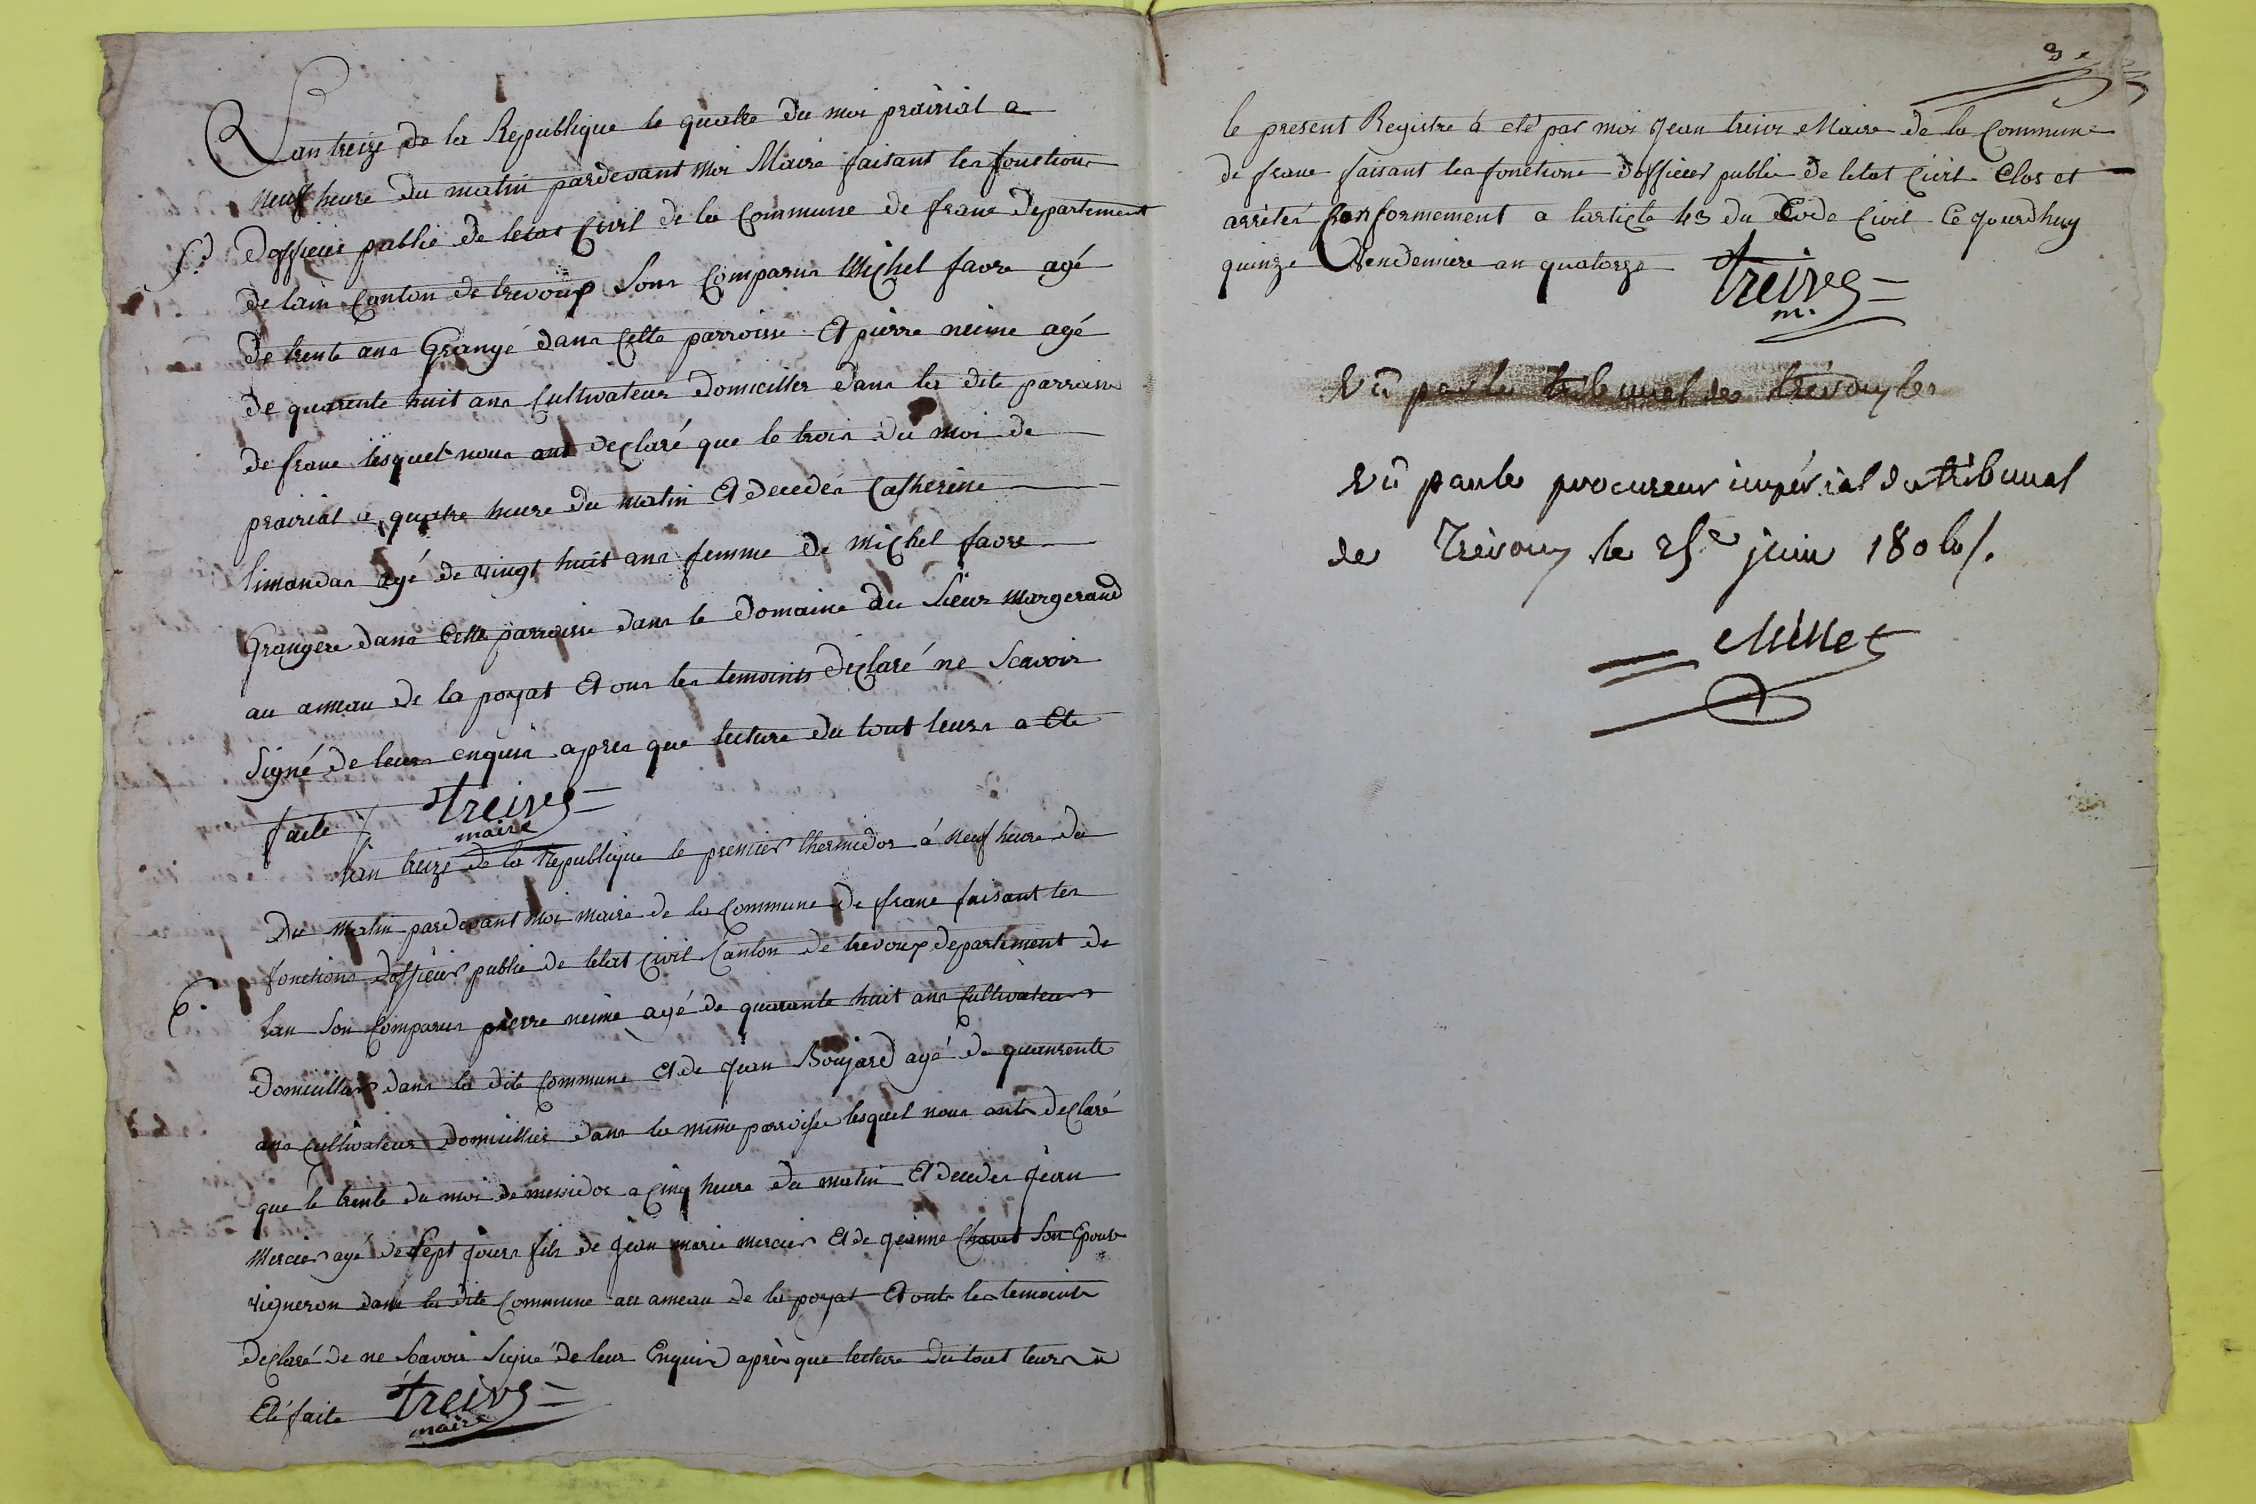 Lan treize de la Republique le quatre du moi prairial a
neuf heure du matin pardevant moi Maire faisant les fonctions
5e. dofficié public de letat Civil de la Commune de frans departement
de lain Canton de trevoux Sons Comparus Michel favre agé
de trente ans Grangé dans Cette parroisse Et pierre neime agé
de quarente huit ans Cultivateur domicillés dans la dite parroisse
de frans lesquel nous ont declaré que le trois du moi de
prairial a quatre heure du matin Et decedés Catherine
limandas agé de vingt huit ans femme de Michel favre
Grangere dans Cette parroisse dans le domaine du Sieur Margerand
au ameau de la poyat Et ons les temoints declaré ne Scavoir
Signé de leurs enquis apres que lecture du tout leurs a Ete
faite treive
maire
lan treize de la republique le premier thermidor á neuf heure du
Du Matin pardevant moi maire de la commune de frans faisant les
fonctions dofficier public de letat Civil Canton de trevoux departement de
6. lan Son Comparus pierre neime agé de quarante huit ans Cultivateur
domicillier dans la dite Commune Et de Jean Boujard agé de quanrente
ans cultivateur domicillier dans la même parroisse lesquel nous onts declaré
que le trente du moi de messidor a Cinq heure du matin Et decedes Jean
Mercier agé de Sept jours fils de Jean marie mercier Et de Jeanne Chavet Son Epouse
vigneron dans la dite Commune au ameau de la poyat Et onts les temoints
declaré de ne Scavoir Signé de leur Enquis après que lecture du tout leurs à
Eté faite treive
maire
3e
le present Registre à eté par moi Jean treive Maire de la Commune
de frans faisant les fonctions dofficier public de letat Civil Clos et
arrétés Conformement a larticle 43 du Code Civil Ce jourdhuy
quinze Vendemiere an quatorze treive
m.
Vû par le tribunal de trévoux le
Vû par le procureur impérial du tribunal
de Trévoux le 25e juin 1806.
Millet